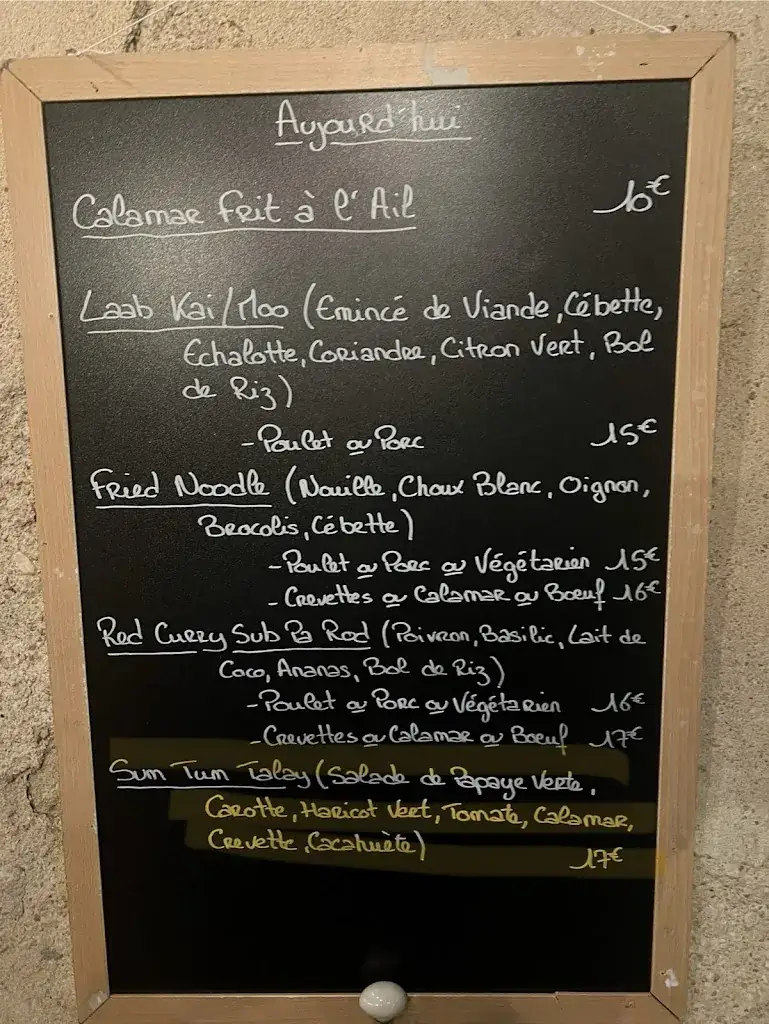 Aujourd'hui
Calamar Frit à l'Ail 10€
Laab Kai/Moo (Emincé de Viande, Cébette,
Echalotte, Coriandre, Citron Vert, Bol
de Riz)
- Poulet ou Porc 15€
Fried Noodle (Nouille, Choux Blanc, Oignon,
Brocolis, Cébette)
- Poulet ou Porc ou Végétarien 15€
- Crevettes ou Calamar ou Boeuf 16€
Red Curry Sub Pa Rod (Poivron, Basilic, Lait de
Coco, Ananas, Bol de Riz)
- Poulet ou Porc ou Végétarien 16€
- Crevettes ou Calamar ou Boeuf 17€
Sum Tum Talay (Salade de Papaye Verte,
Carotte, Haricot Vert, Tomate, Calamar,
Crevette, Cacahuète)
17€